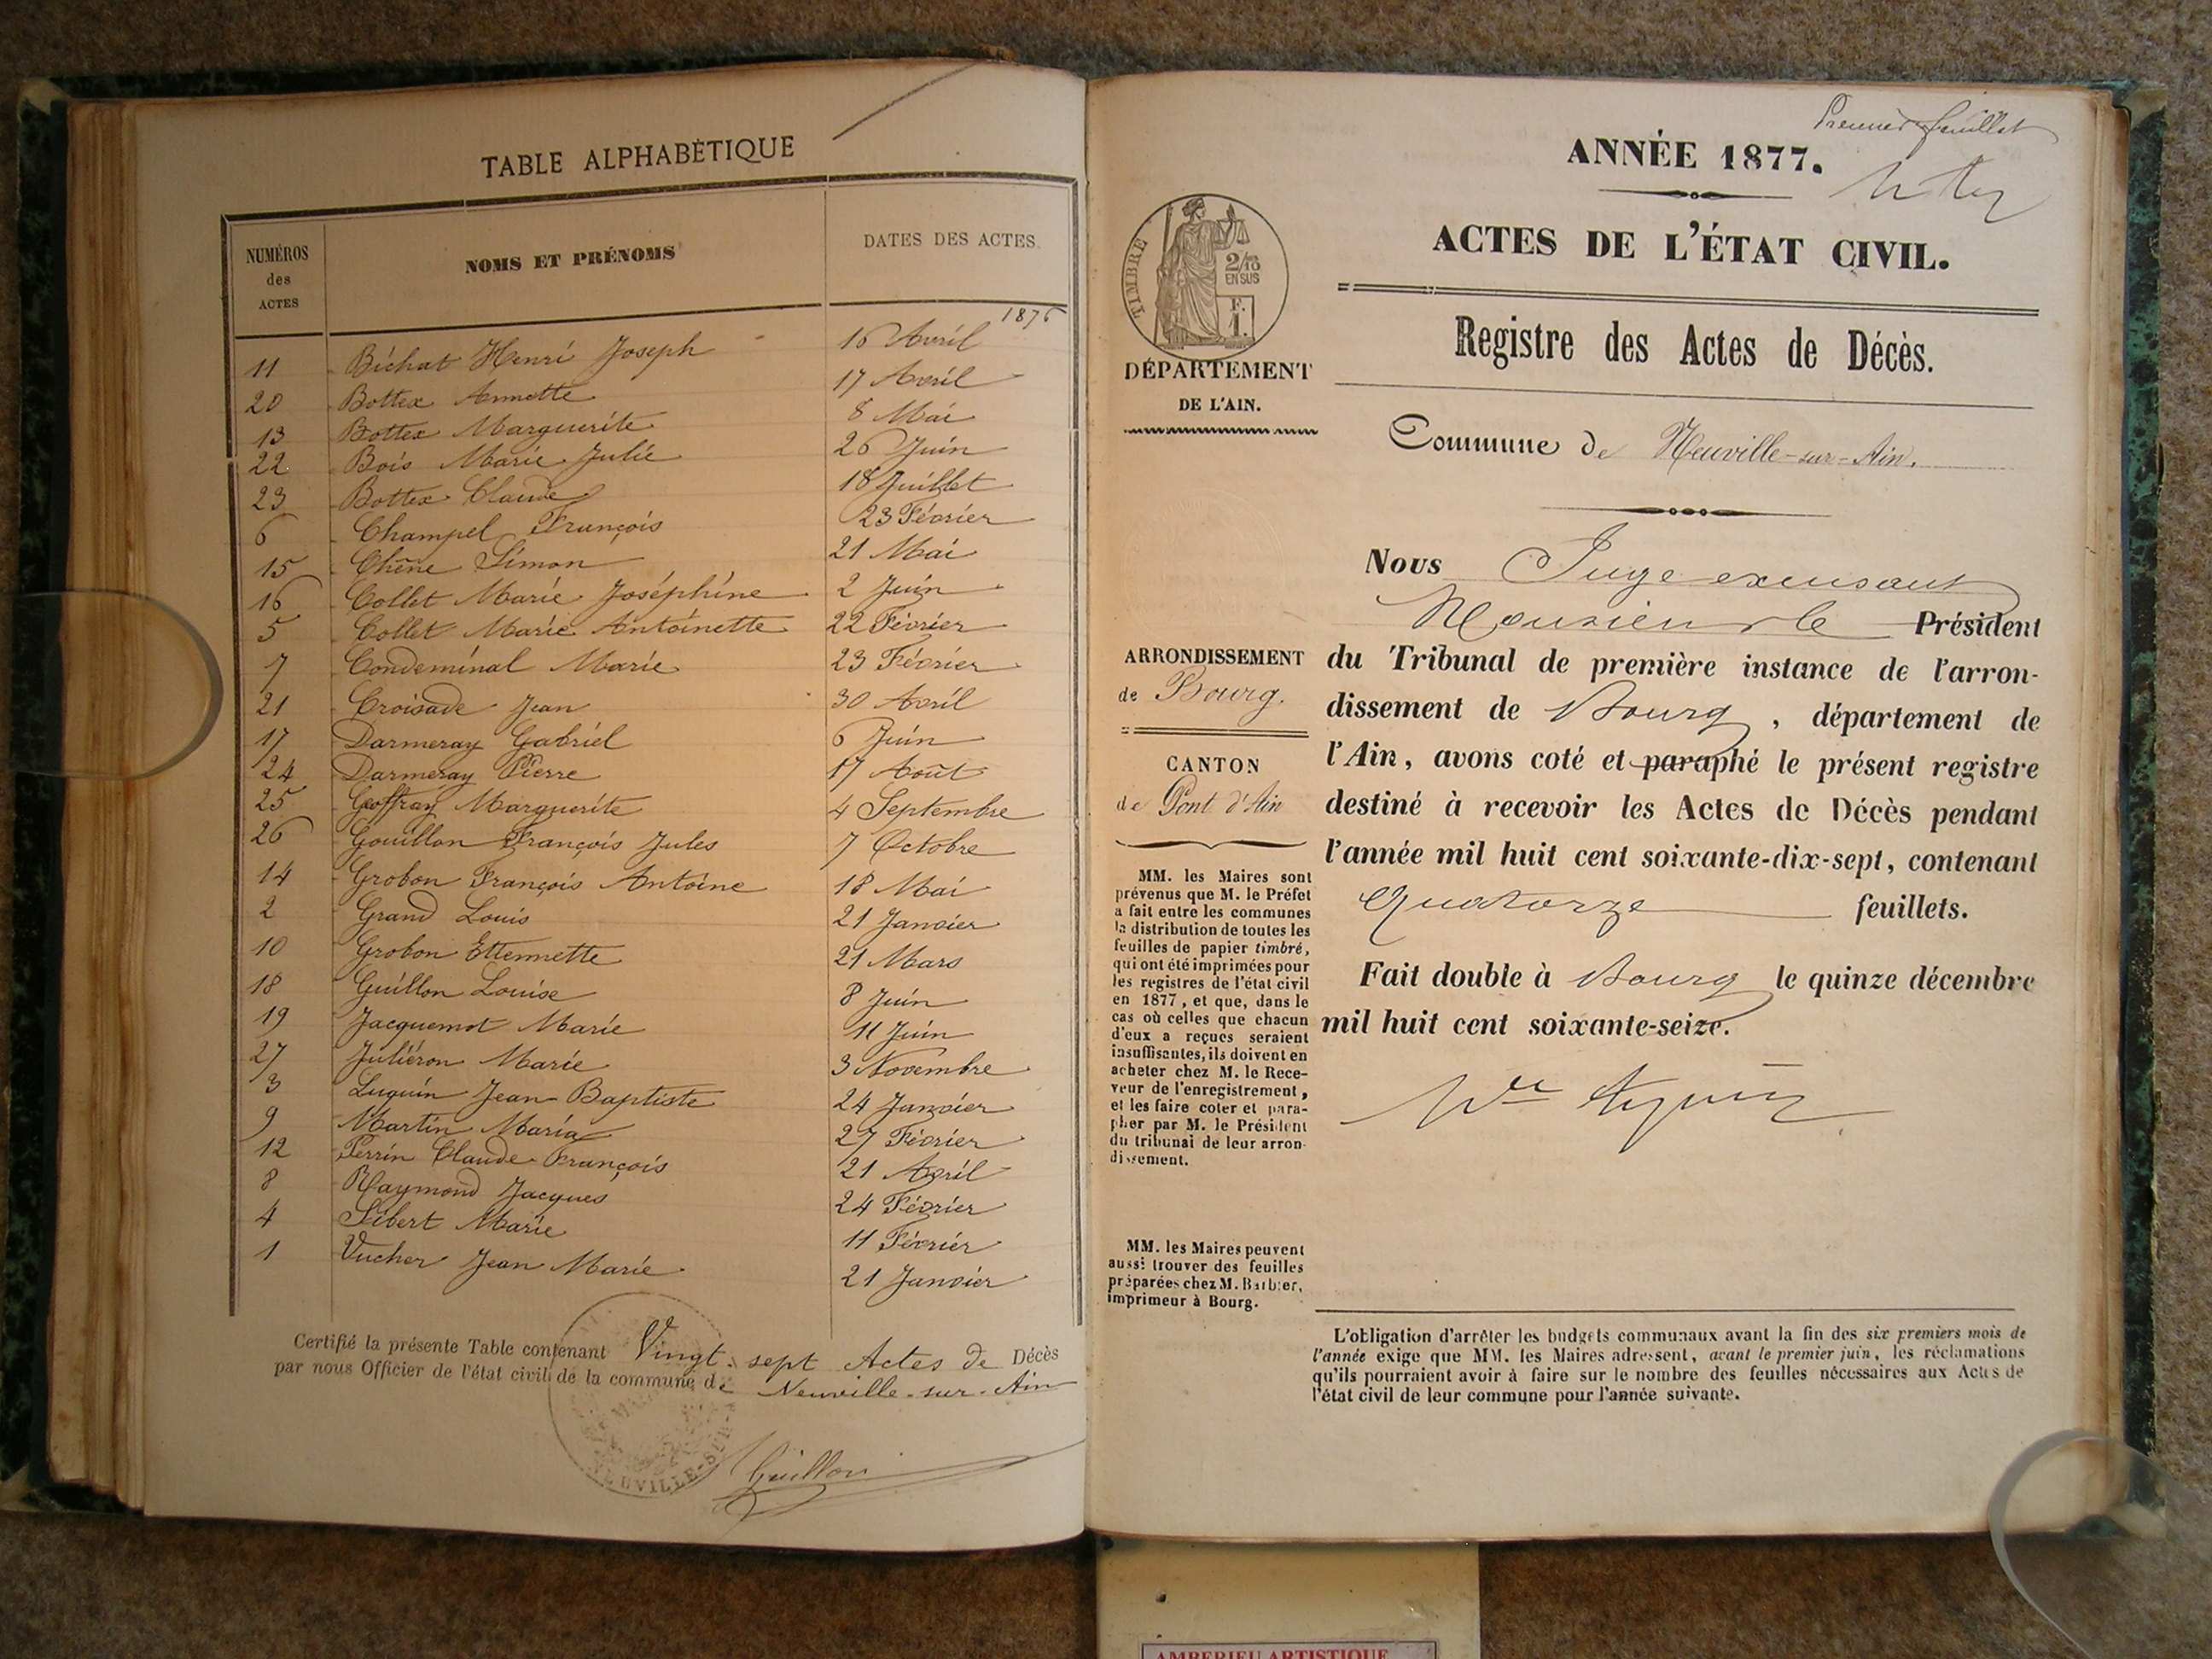 TABLE ALPHABÉTIQUE
NUMÉROS des ACTES
NOMS ET PRÉNOMS
DATES DES ACTES
1876
11 Béchat Henri Joseph 16 Avril
20 Bottex Annette 17 Avril
13 Bottex Marguerite 8 Mai
22 Bois Marie Julie 26 Juin
23 Bottex Claude 18 Juillet
6 Champel François 23 Février
15 Chêne Simon 21 Mai
16 Collet Marie Joséphine 2 Juin
5 Collet Marie Antoinette 22 Février
7 Condeminal Marie 23 Février
21 Croisade Jean 30 Avril
17 Darmeray Gabriel 6 Juin
24 Darmeray Pierre 17 Août
25 Geoffray Marguerite 4 Septembre
26 Gouillon François Jules 7 Octobre
14 Grobon François Antoine 18 Mai
2 Grand Louis 21 Janvier
10 Grobon Ettennette 21 Mars
18 Guillon Louise 8 Juin
19 Jacquemot Marie 11 Juin
27 Juliéron Marie 3 Novembre
3 Luguin Jean Baptiste 24 Janvier
9 Martin Maria 27 Février
12 Perrin Claude François 21 Avril
8 Raymond Jacques 24 Février
4 Sibert Marie 11 Février
1 Vucher Jean Marie 21 Janvier
Certifié la présente Table contenant Vingt-sept Actes de Décès
par nous Officier de l'état civil de la commune de Neuville-sur-Ain
Guillon
Premier feuillet
ANNÉE 1877.
ACTES DE L'ÉTAT CIVIL.
TIMBRE
2/10
EN SUS
F.
1.
Registre des Actes de Décès.
DÉPARTEMENT
DE L'AIN.
Commune de Neuville-sur-Ain.
ARRONDISSEMENT
de Bourg.
CANTON
de Pont d'Ain
MM. les Maires sont
prévenus que M. le Préfet
a fait entre les communes
la distribution de toutes les
feuilles de papier timbré,
qui ont été imprimées pour
les registres de l'état civil
en 1877, et que, dans le
cas où celles que chacun
d'eux a reçues seraient
insuffisantes, ils doivent en
acheter chez M. le Rece-
veur de l'enregistrement,
et les faire coter et para-
pher par M. le Président
du tribunal de leur arron-
dissement.
MM. les Maires peuvent
aussi trouver des feuilles
préparées chez M. Barbier,
imprimeur à Bourg.
Nous Juge excusant
Monsieur le Président
du Tribunal de première instance de l'arron-
dissement de Bourg, département de
l'Ain, avons coté et paraphé le présent registre
destiné à recevoir les Actes de Décès pendant
l'année mil huit cent soixante-dix-sept, contenant
Quatorze feuillets.
Fait double à Bourg le quinze décembre
mil huit cent soixante-seize.
L'obligation d'arrêter les budgets communaux avant la fin des six premiers mois de
l'année exige que MM. les Maires adressent, avant le premier juin, les réclamations
qu'ils pourraient avoir à faire sur le nombre des feuilles nécessaires aux Actes de
l'état civil de leur commune pour l'année suivante.
AMBERIEU ARTISTIQUE